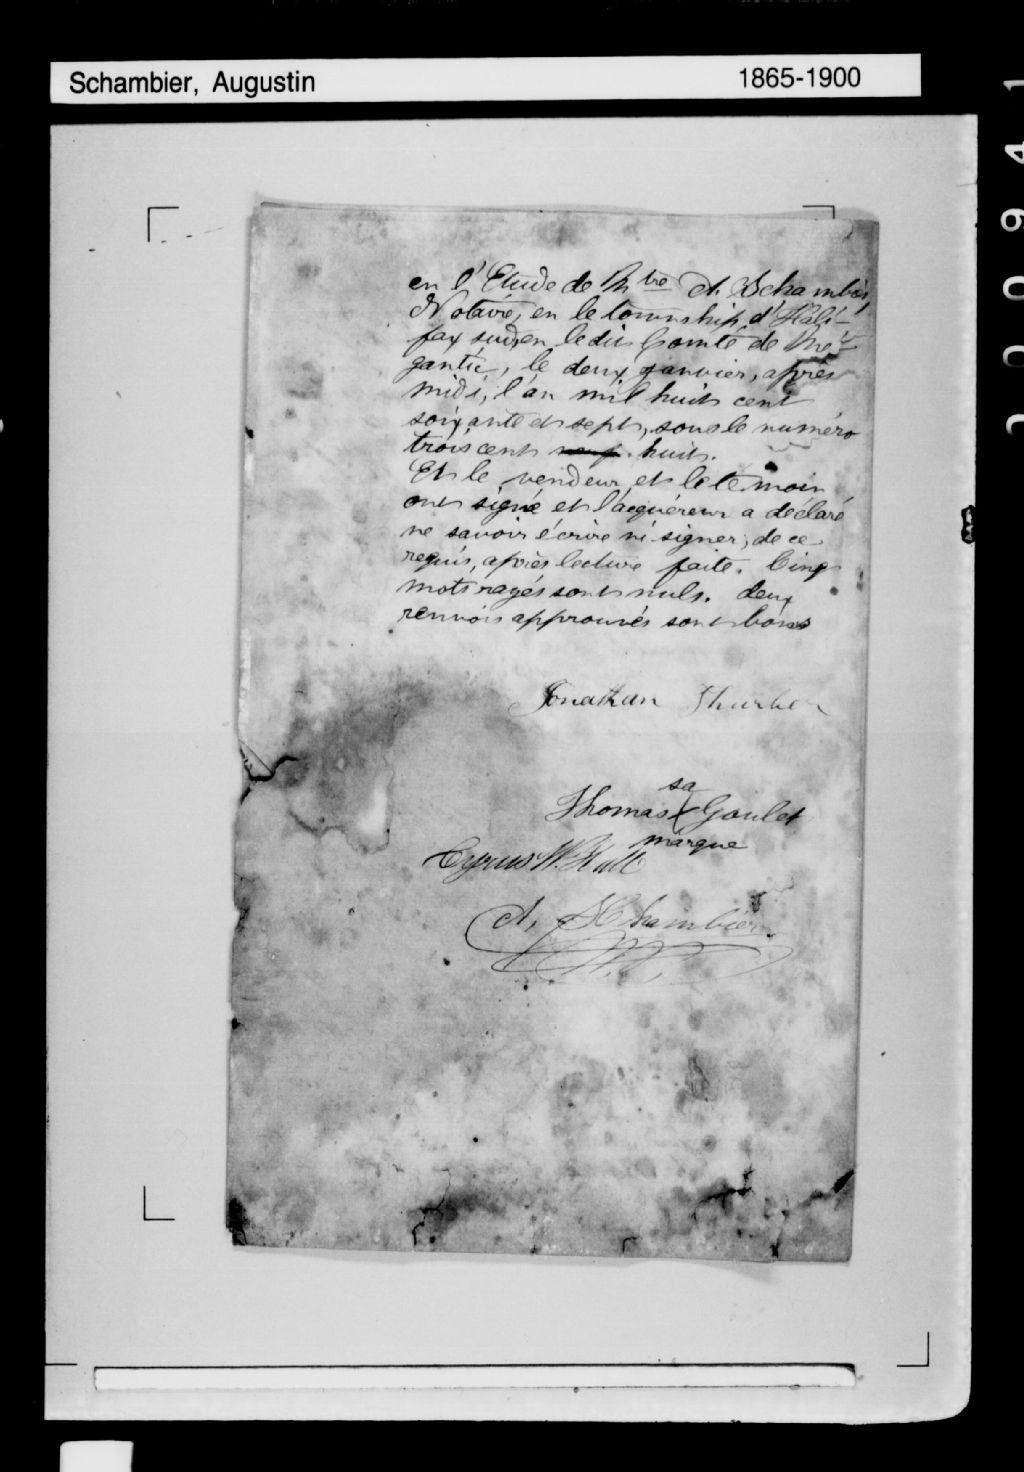 Schambier, Augustin
1865-1900
en l'Etude de Mtre A. Schambier
Notaire, en le township d'Hali-
fax sud, en le dit Comté de Mé-
gantic, le deux janvier, après
midi, l'an mil huit cent
soixante et sept, sous le numéro
trois cent neuf huit.
Et le vendeur et le témoin
ont signé et l'acquéreur a déclaré
ne savoir écrire ni signer, de ce
requis, après lecture faite. Cinq
mots rayés sont nuls. deux
renvois approuvés sont bons
Jonathan Thurber
sa
Thomas X Goulet
marque
Cyrus W. Hall
A. Schambier
N.P.